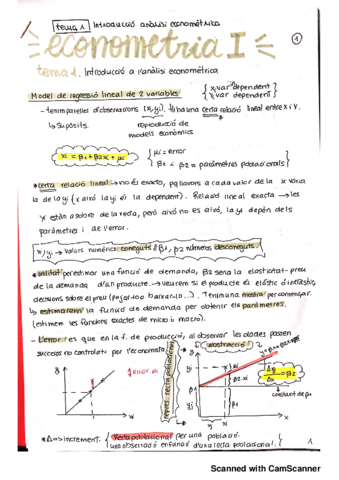 tema 1 Introducció anàlisi econométrica
1
econometria I
tema 1. Introducció a l'anàlisi econométrica
Model de regressió lineal de 2 variables
xi var dependent
yi var dependent
- tenim parelles d'observacions (xi, yi). Hi ha una certa relació lineal entre x i y.
↳ Supòsits. reproducció de
models econòmics
xi = β1 + β2xi + μi
μi = error
β1 i β2 = paràmetres poblacionals
certa relació lineal → no és exacta, pq llavors a cada valor de la x varia
la de la y (x això la yi és la dependent). Relació lineal exacta → les
yi estan a sobre de la recta, però això no és això, la yi depèn dels
paràmetres i de l'error.
xi, yi → valors numèrics coneguts i β1, β2 números desconeguts.
utilitat per estimar una funció de demanda, β2 seria la elasticitat-preu
de la demanda d'un producte. → veurem si el producte és elàstic o inelàstic,
decisions sobre el preu (pujar-lo o baixar-lo...). Tenim una mostra per començar.
↳ estimarem la funció de demanda per obtenir els paràmetres.
(estimem les funcions exactes de micro i macro).
- L'error: es que en la f. de producció, al observar les dades passen
successos no controlats per l'economista
(abstracció)
error xi
Δy/Δx = β2
constant de β2
β2·xi
β1
xi
*Δ => increment.
Recta poblacional per una població.
una observació en funció d'una recta poblacional.
1
Scanned with CamScanner